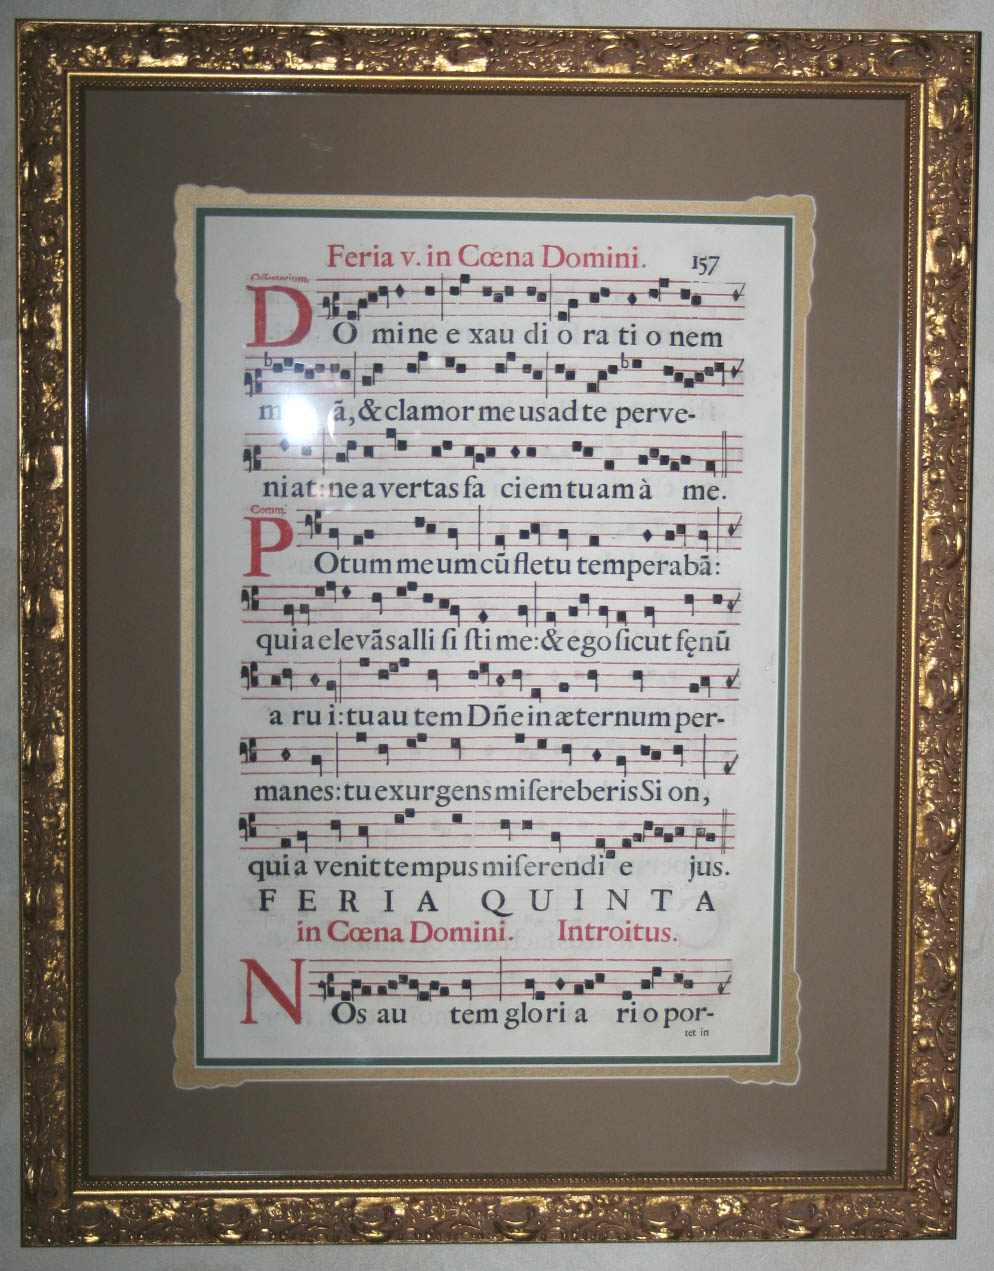 Feria v. in Cœna Domini. 157
Offertorium.
DO mine e xau di o ra ti o nem
ã, & clamor meus ad te perve-
niat: ne avertas fa ciem tuam à me.
Comm.
POtum meum cũ fletu temperabã:
quia elevãs alli si sti me: & ego sicut fęnũ
a ru i: tu au tem Dñe in æternum per-
manes: tu exurgens misereberis Si on,
quia venit tempus miserendi e jus.
FERIA QUINTA
in Cœna Domini. Introitus.
NOs au tem glori a ri o por-
tet in